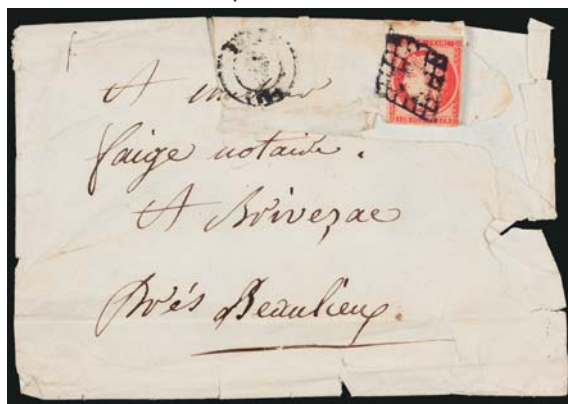 A
faige notaire.
A Brivezac
Près Beaulieu.